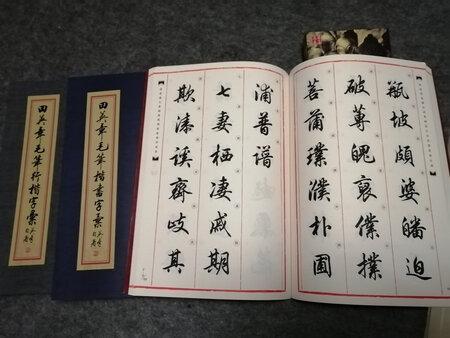 田英章毛筆行楷字彙
田英章毛筆楷書字彙
瓶坡頗婆皤迫
破魄裒僕撲
菩蒲璞濮朴圃
浦普譜
七妻栖凄戚期
欺漆蹊齊歧其